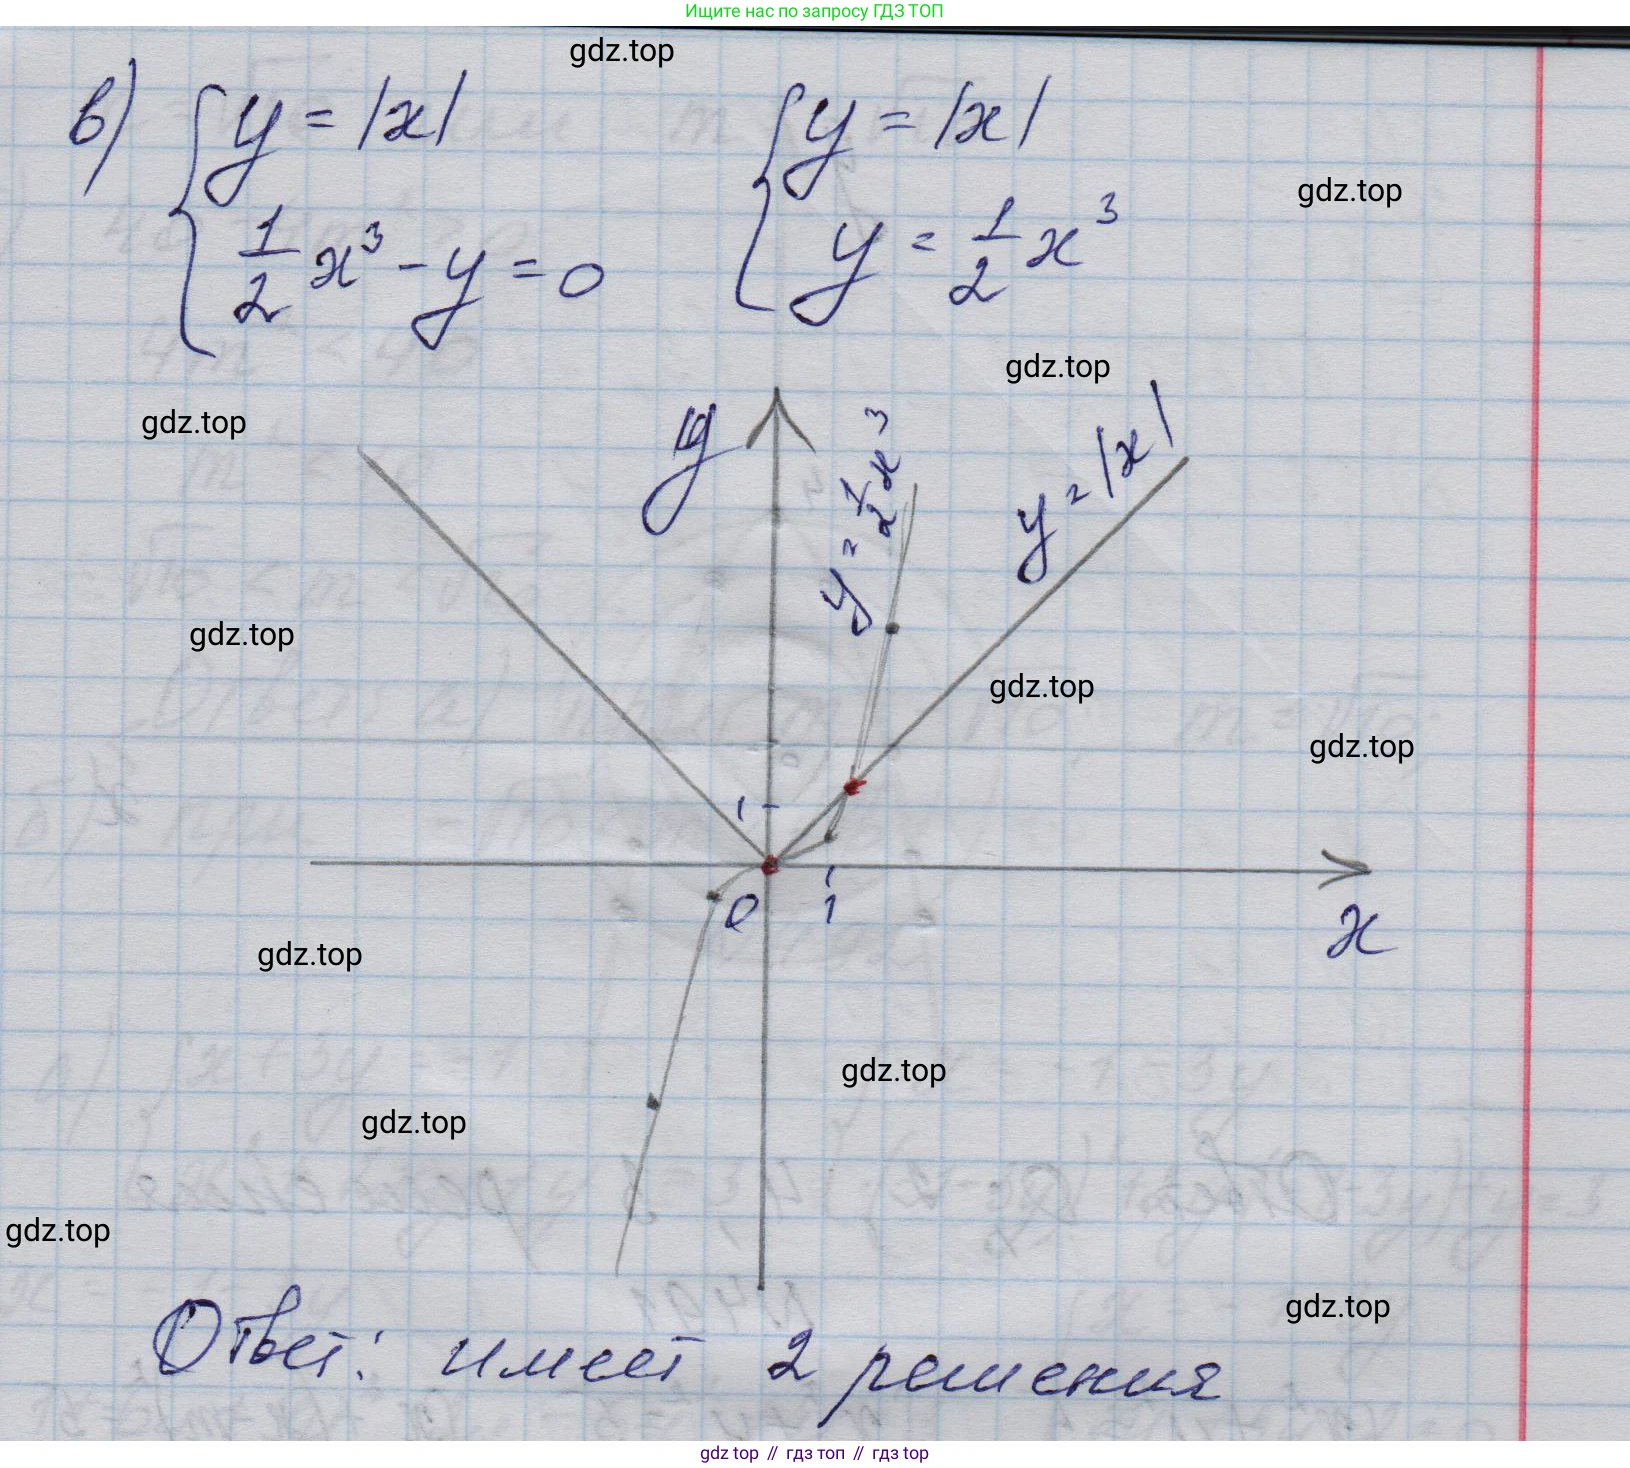 Ищите нас по запросу ГДЗ ТОП
gdz.top
в) { y = |x|   { y = |x|
1/2 x³ - y = 0   y = 1/2 x³
gdz.top
gdz.top
gdz.top
y
y = 1/2 x³
y = |x|
gdz.top
gdz.top
gdz.top
1
0
1
x
gdz.top
gdz.top
gdz.top
gdz.top
gdz.top
Ответ: имеет 2 решения
gdz top // гдз топ // гдз top